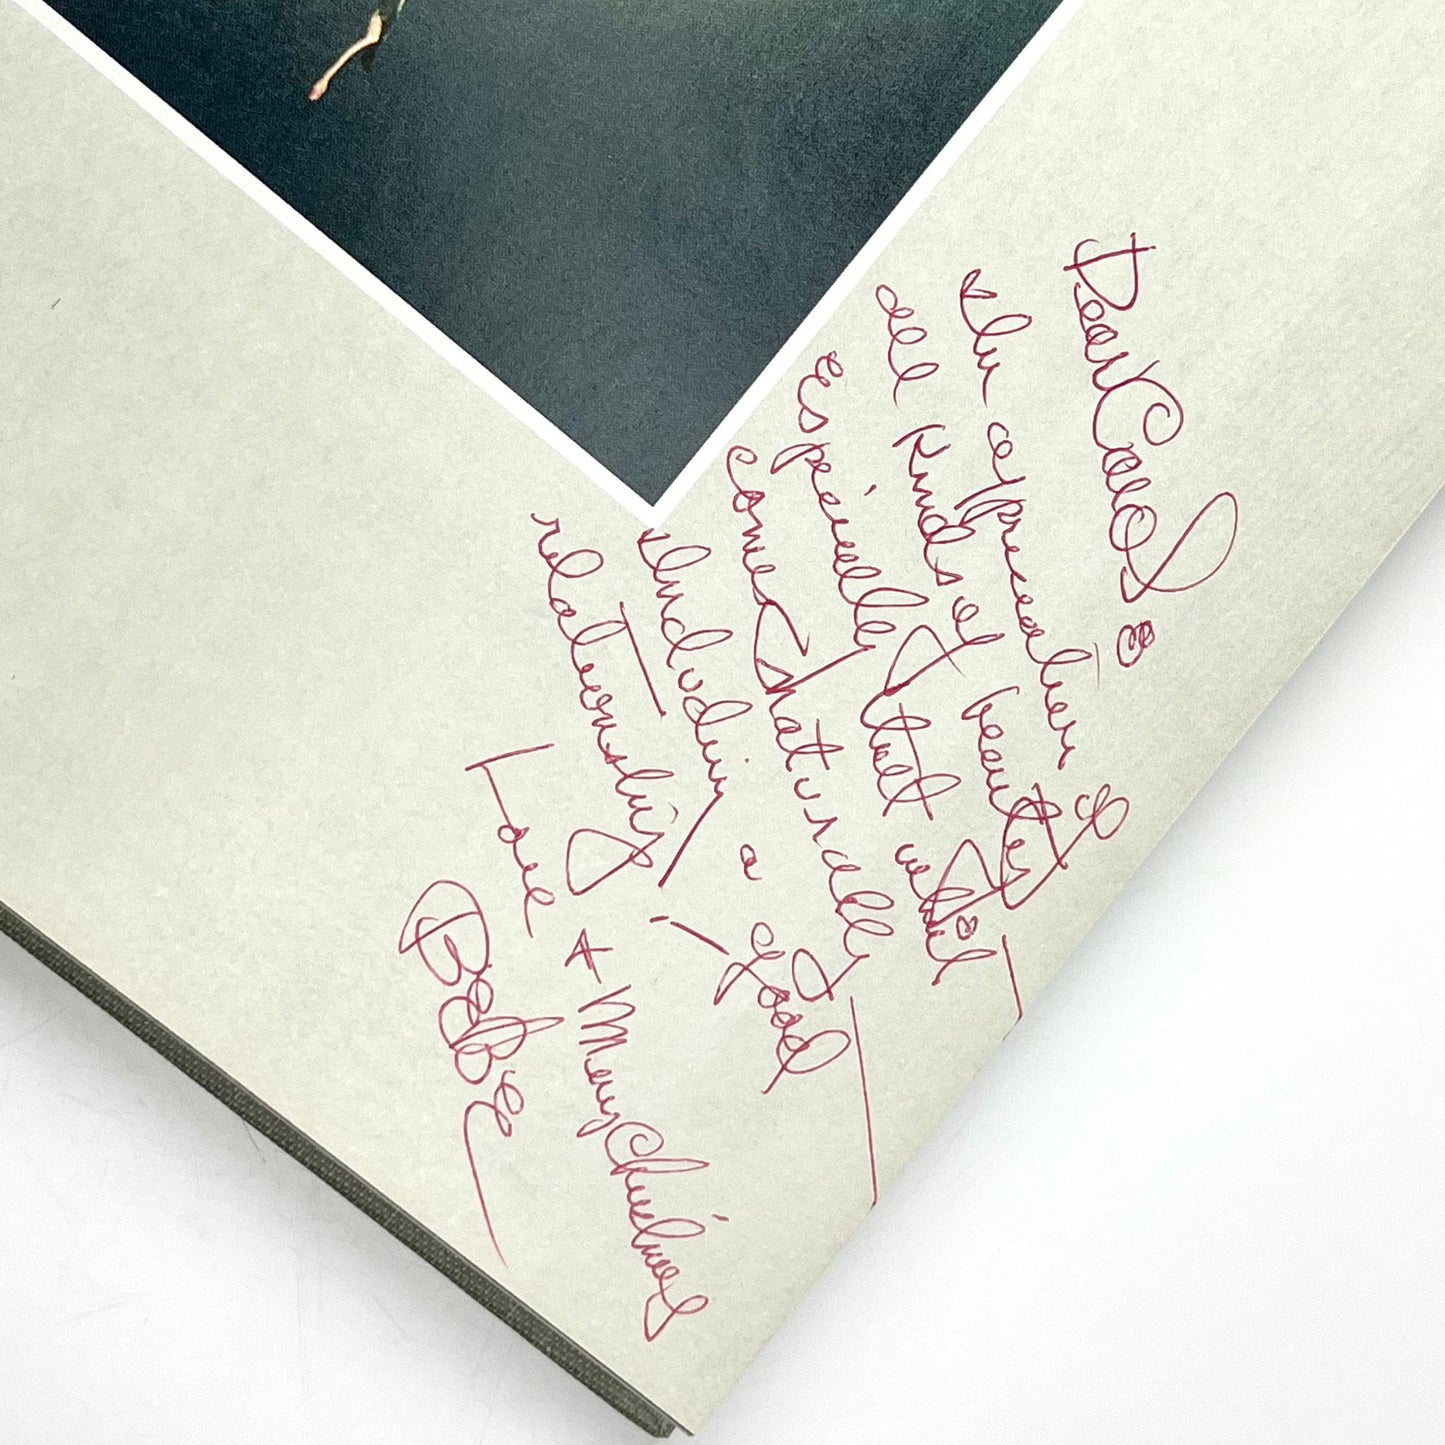 Dear Carol:
the appreciation of
all kinds of beauty —
especially that which
comes naturally —
including a good
relationship —
Love & Merry Christmas